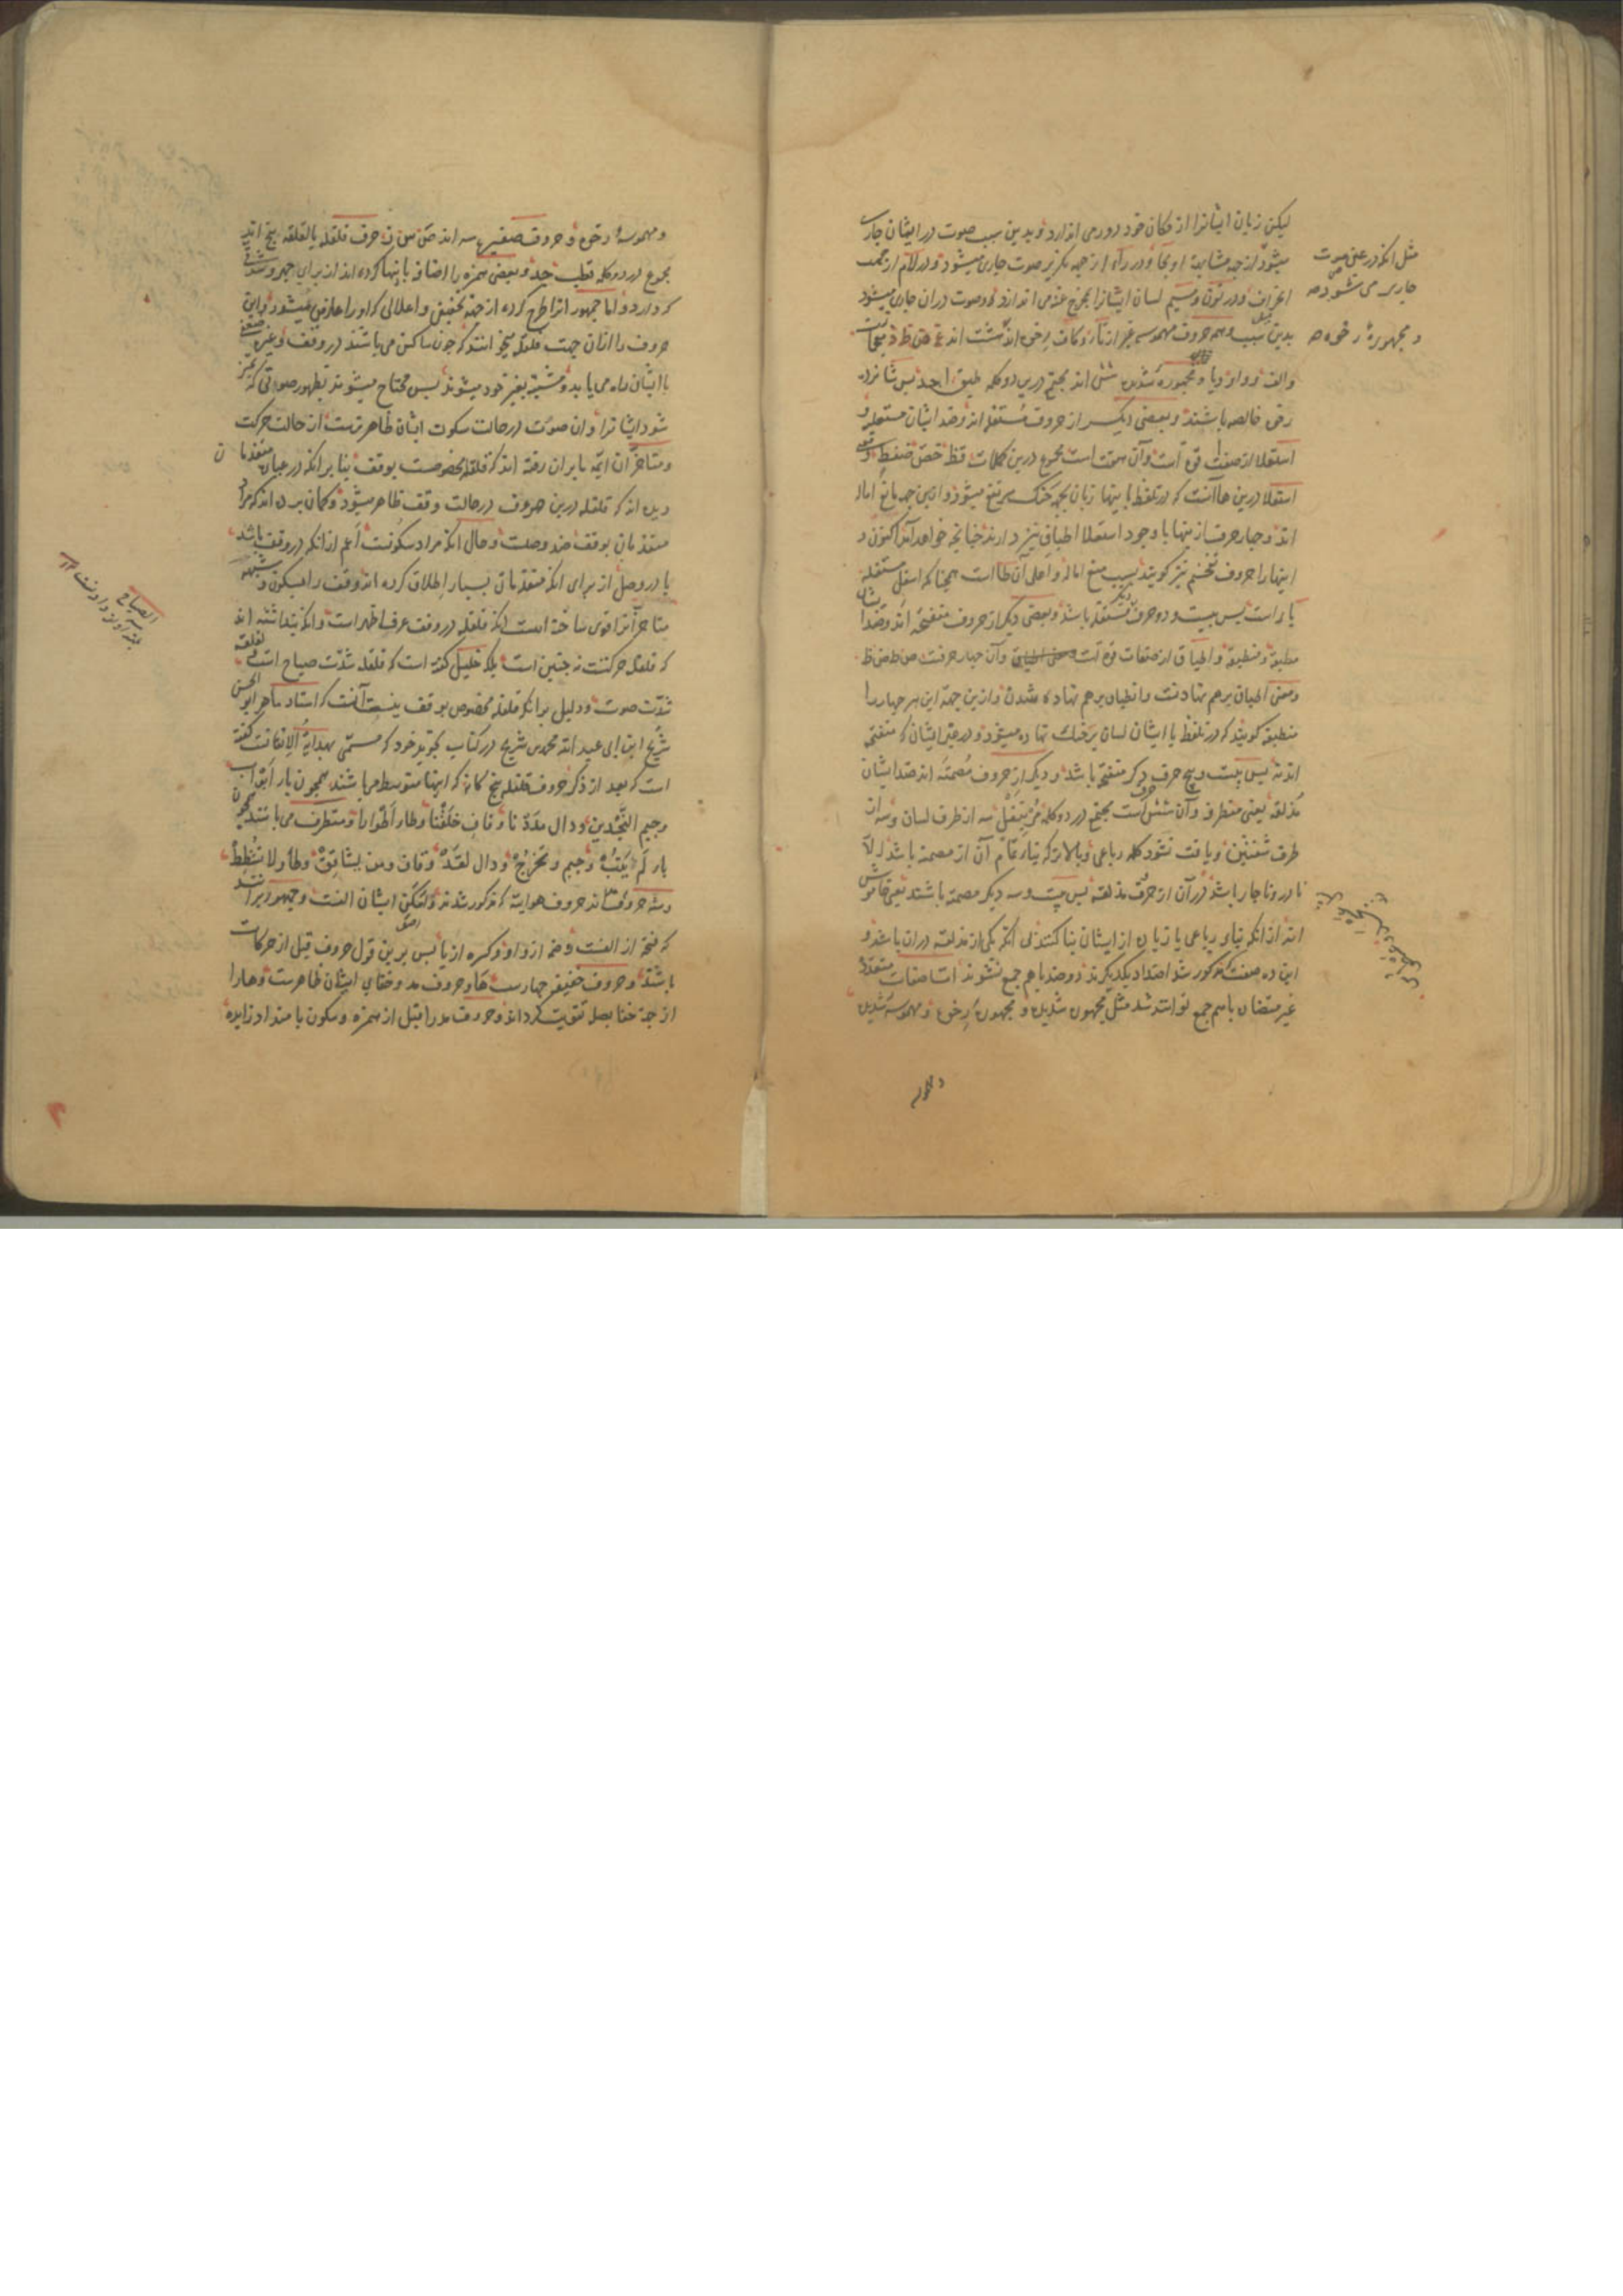 لیکن زبان ایشانرا از مکان خود دور می اندازد و بدین سبب صوت در ایشان جاری
میشود از جهة مشابهة او بحا و در راء از جهة تکریر صوت جاری میشود و در لام از جهت
انحراف و در نون و میم لسان ایشانرا بمخرج غنه می اندازد که صوت دران جاری میشود
بدین سبب و همه حروف مهموسه غیر از تا و کاف رخوه اند
والف و واو و یا و مجهوره شدیده شش اند مجتمع درین دو کلمه طبق اجد پس شانزده
رخو خالصه باشند و بعضی دیگر از حروف مستعلیه اند و ضد ایشان مستفله و
استعلا از صفت قوة است و آن هفت است مجموع درین کلمات قظ خص ضغط
استعلا درین ها آنست که در تلفظ با ینها زبان بجهة حنک مرتفع میشود و ازین جهة مانع اماله
اند و چهار حرف از ینها با وجود استعلا اطباق نیز دارند چنانچه خواهد آمد اکنون و
اینها را حروف تفخیم نیز گویند بسبب منع اماله و اعلی آن طا است همچنا که اسفل مستفله
یا است پس بیست و دو حرف مستفله باشد و بعضی دیگر از حروف منفتحه اند و ضد ایشان
مطبقه و منطبقة و اطباق از صفات قوة است وآن چهار حرفست ص ط ض ظ
ومعنی اطباق برهم نهادنست و انطباق برهم نهاده شدن و ازین جهة این هر چهار را
منطبقة گویند که در تلفظ با ایشان لسان برحنک نهاده میشود و در غیر ایشان که منفتحه
اند نه پس بیست و پنج حرف دیگر منفتحة باشد و دیگر از حروف مصمته اند ضد ایشان
مذلقه یعنی متطرف و آن شش است مجتمع در دو کلمه مر بنفل سه از طرف لسان و سه از
طرف شفتین و یافت نشود کلمه رباعی و بالاتر که بناء تمام آن از مصمته باشد الا
نادر و ناچار باشد در آن از حرف مذلقه پس بیست وسه دیگر مصمته باشند یعنی خاموش
اند از انکه بناء رباعی یا زیاده از ایشان بنا کنند بی انکه یکی از مذلقه دران باشد و
این ده صفت که مذکور شد اضداد یکدیگرند و دو ضد با هم جمع نشوند اما صفات متعدده
غیر متضاده باهم جمع توانند شد مثل مجهوره شدیده و مجهوره رخوه و مهموسه شدیده
مثل انکه در عین صوت
جاری می شود صح
و مجهوره رخوه
ومهموسه رخوه و حروف صفیر سه اند ص س ز و حرف قلقله یا لقلقه پنج اند
مجموع در دو کلمه قطب جد و بعضی همزه را اضافه با ینها کرده اند از برای جهر و شدتی
که دارد و اما جمهور انرا طرح کرده از جهة تخفیف و اعلالی که او را عارض میشود و این
حروف را ازان جهت قلقله میخوانند که چون ساکن می باشند در وقف و غیره ضعفی
با ایشان راه می یابد و مشتبه بغیر خود میشوند پس محتاج میشوند بظهور صوتی که ممیز
شود ایشانرا و ان صوت در حالت سکون ایشان ظاهر ترست از حالت حرکت
ومتاخران ائمة ما بران رفته اند که قلقله مخصوصست بوقف بنا برانکه در عبارت متقدمان
دیده اند که قلقله درین حروف در حالت وقف ظاهر میشود و گمان برده اند که مراد
متقدمان بوقف ضد وصلست و حال انکه مراد سکونست اعم از انکه در وقف باشد
یا در وصل از برای انکه متقدمان بسیار اطلاق کرده اند وقف را بسکون و شبهه
متاخر انرا قوی ساخته است انکه قلقله در وقف عرفا اظهر است و انکه پنداشته اند
که قلقله حرکتست نه چنین است بلکه خلیل گفته است که قلقله شدت صیاح است و لقلقه
شدت صوت و دلیل برانکه قلقله مخصوص بوقف نیست آنست که استاد ماهر ابو الحسن
شریح ابن ابی عبد الله محمد بن شریح در کتاب تجوید خود که مسمی بهدایة الاتقانست گفته
است که بعد از ذکر حروف قلقله پنج کانه که اینها متوسط می باشند همچون باء ابواب
وجیم النجدین و دال مددنا و قاف خلقنا وطاء اطوارا و متطرف می باشند همچون
باء لم یتب وجیم و تخرج و دال لقد و قاف ومن یشاقق وطاء ولا تشطط
وسه حروف اند حروف هوایه که مذکور شدند و امکن ایشان الفست و جمهور برانند
که فتحه از الفست و ضمه از واو و کسره از یا پس برین قول حروف قبل از حرکات
باشند و حروف خفیفه چهارست ها و حروف مد و خفای ایشان ظاهرست و هارا
از جهة خفا بصله تقویت کرداند و حروف مد را قبل از همزه و سکون با متداد زایده
الصیاح